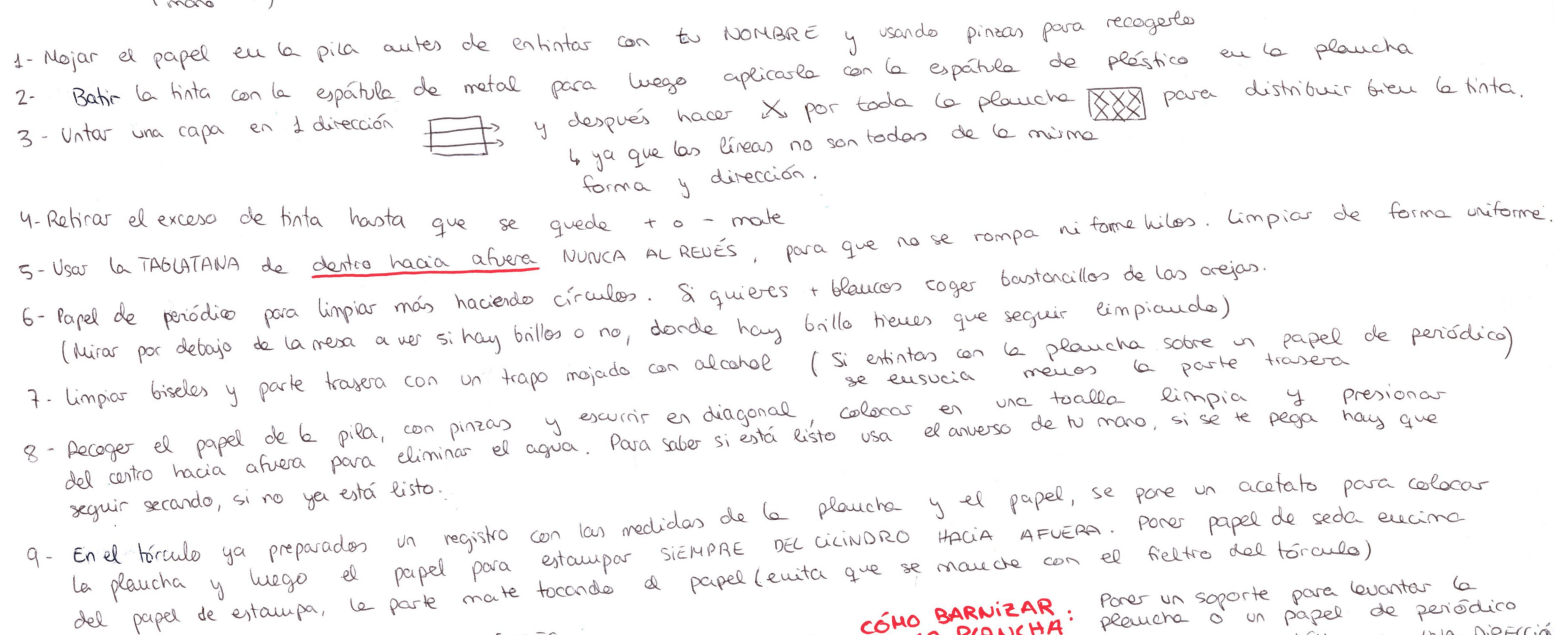 ( mano )
1- Mojar el papel en la pila antes de entintar con tu NOMBRE y usando pinzas para recogerlo
2- Batir la tinta con la espátula de metal para luego aplicarla con la espátula de plástico en la plancha
3- Untar una capa en 1 dirección y después hacer X por toda la plancha para distribuir bien la tinta.
↳ ya que las líneas no son todas de la misma
forma y dirección.
4- Retirar el exceso de tinta hasta que se quede + o - mate
5- Usar la TAGLATANA de dentro hacia afuera NUNCA AL REVÉS, para que no se rompa ni forme hilos. Limpiar de forma uniforme.
6- Papel de periódico para limpiar más haciendo círculos. Si quieres + blancos coger bastoncillos de las orejas.
(Mirar por debajo de la mesa a ver si hay brillos o no, donde hay brillo tienes que seguir limpiando)
7- Limpiar biseles y parte trasera con un trapo mojado con alcohol (Si entintas con la plancha sobre un papel de periódico)
se ensucia menos la parte trasera
8- Recoger el papel de la pila, con pinzas y escurrir en diagonal, colocar en una toalla limpia y presionar
del centro hacia afuera para eliminar el agua. Para saber si está listo usa el anverso de tu mano, si se te pega hay que
seguir secando, si no ya está listo.
9- En el tórculo ya preparados un registro con las medidas de la plancha y el papel, se pone un acetato para colocar
la plancha y luego el papel para estampar SIEMPRE DEL CILINDRO HACIA AFUERA. Poner papel de seda encima
del papel de estampa, la parte mate tocando el papel (evita que se manche con el fieltro del tórculo)
CÓMO BARNIZAR : Poner un soporte para levantar la
PLANCHA plancha o un papel de periódico